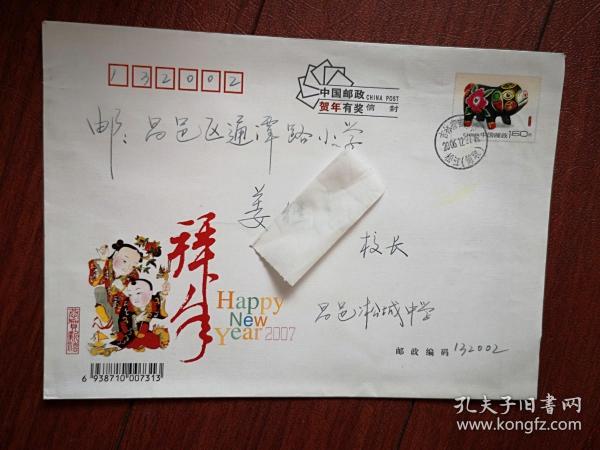 132002
中国邮政 CHINA POST
贺年有奖信封
中国邮政 160分
邮：昌邑区通潭路小学
姜
校长
拜年
Happy
New
Year 2007
昌邑松城中学
邮政编码 132002
6 938710 007313
孔夫子旧书网
www.kongfz.com